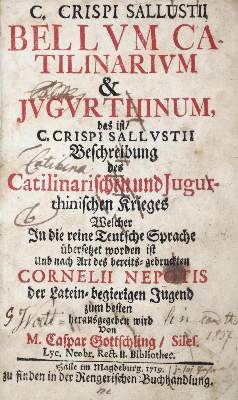 C. CRISPI SALLUSTII
BELLVM CA-
TILINARIVM
&
JVGVRTHINUM,
das ist/
C. CRISPI SALLVSTII
Beschreibung
des
Catilinarischen und Jugur-
thinischen Krieges
Welcher
In die reine Teutsche Sprache
übersetzet worden ist
Und nach Art des bereits-gedruckten
CORNELII NEPOTIS
der Latein-begierigen Jugend
zum besten
herausgegeben wird
Von
M. Caspar Gottschling / Siles.
Lyc. Neobr. Rect. & Bibliothec.
Halle im Magdeburg. 1719.
zu finden in der Rengerischen Buchhandlung.